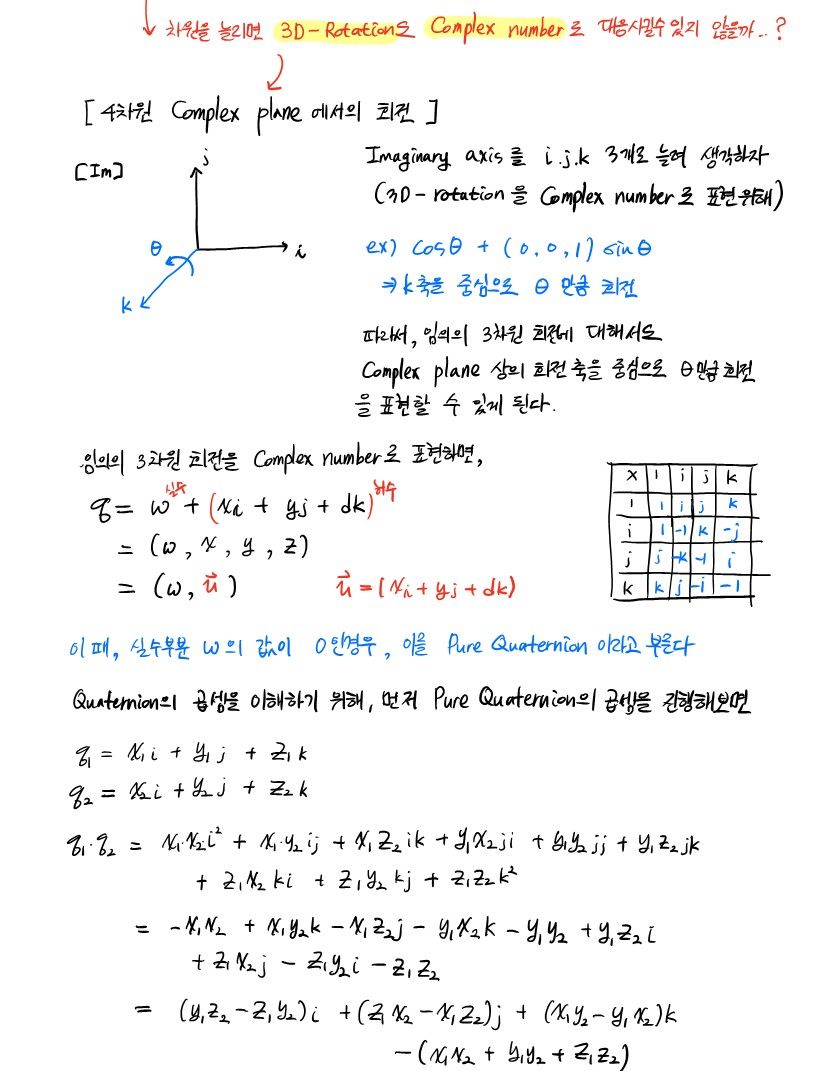 차원을 늘리면 3D-Rotation도 Complex number로 대응시킬수 있지 않을까..?
[ 4차원 Complex plane 에서의 회전 ]
[Im]
j
i
θ
k
Imaginary axis를 i.j.k 3개로 늘려 생각하자
(3D-rotation을 Complex number로 표현위해)
ex) cosθ + (0,0,1) sinθ
⇒ k축을 중심으로 θ만큼 회전
따라서, 임의의 3차원 회전에 대해서도
Complex plane 상의 회전 축을 중심으로 θ만큼 회전
을 표현할 수 있게 된다.
임의의 3차원 회전을 Complex number로 표현하면,
실수 허수
q = w + (xi + yj + dk)
= (w, x, y, z)
= (w, u⃗) u⃗ = (xi + yj + dk)
x 1 i j k
1 1 i j k
i 1 -1 k -j
j j -k -1 i
k k j -i -1
이때, 실수부분 w의 값이 0인경우, 이를 Pure Quaternion 이라고 부른다
Quaternion의 곱셈을 이해하기 위해, 먼저 Pure Quaternion의 곱셈을 진행해보면
q₁ = x₁i + y₁j + z₁k
q₂ = x₂i + y₂j + z₂k
q₁·q₂ = x₁·x₂i² + x₁·y₂ij + x₁z₂ik + y₁x₂ji + y₁y₂jj + y₁z₂jk
+ z₁x₂ki + z₁y₂kj + z₁z₂k²
= -x₁x₂ + x₁y₂k - x₁z₂j - y₁x₂k - y₁y₂ + y₁z₂i
+ z₁x₂j - z₁y₂i - z₁z₂
= (y₁z₂ - z₁y₂)i + (z₁x₂ - x₁z₂)j + (x₁y₂ - y₁x₂)k
- (x₁x₂ + y₁y₂ + z₁z₂)